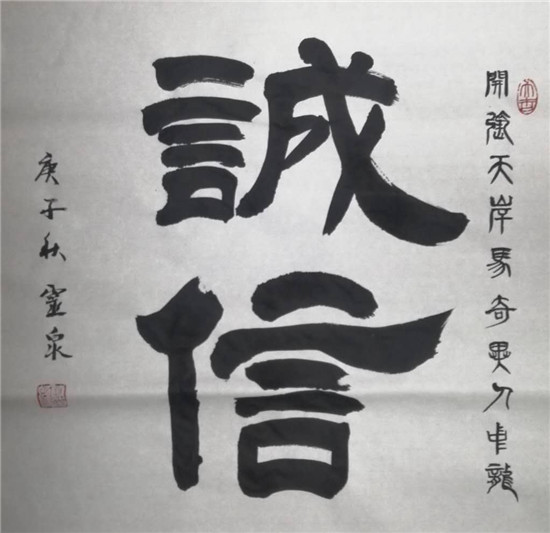 開張天岸馬奇異人中龍
誠信
庚子秋靈泉